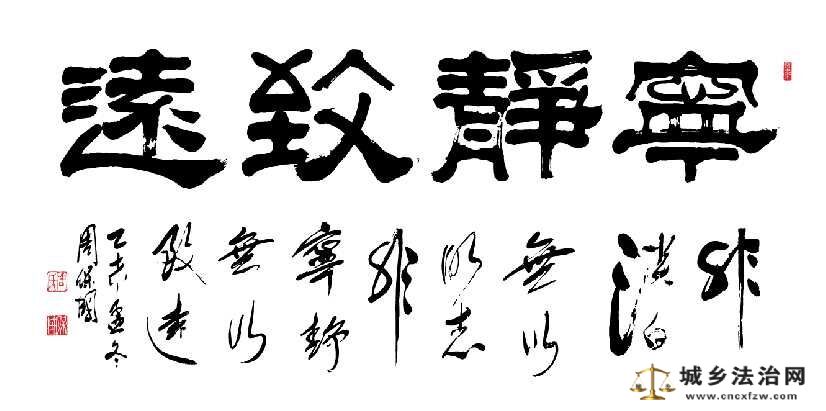 寧靜致遠
非
淡泊
無以
明志
非
寧静
無以
致遠
乙未孟冬
周保
城乡法治网
www.cncxfzw.com